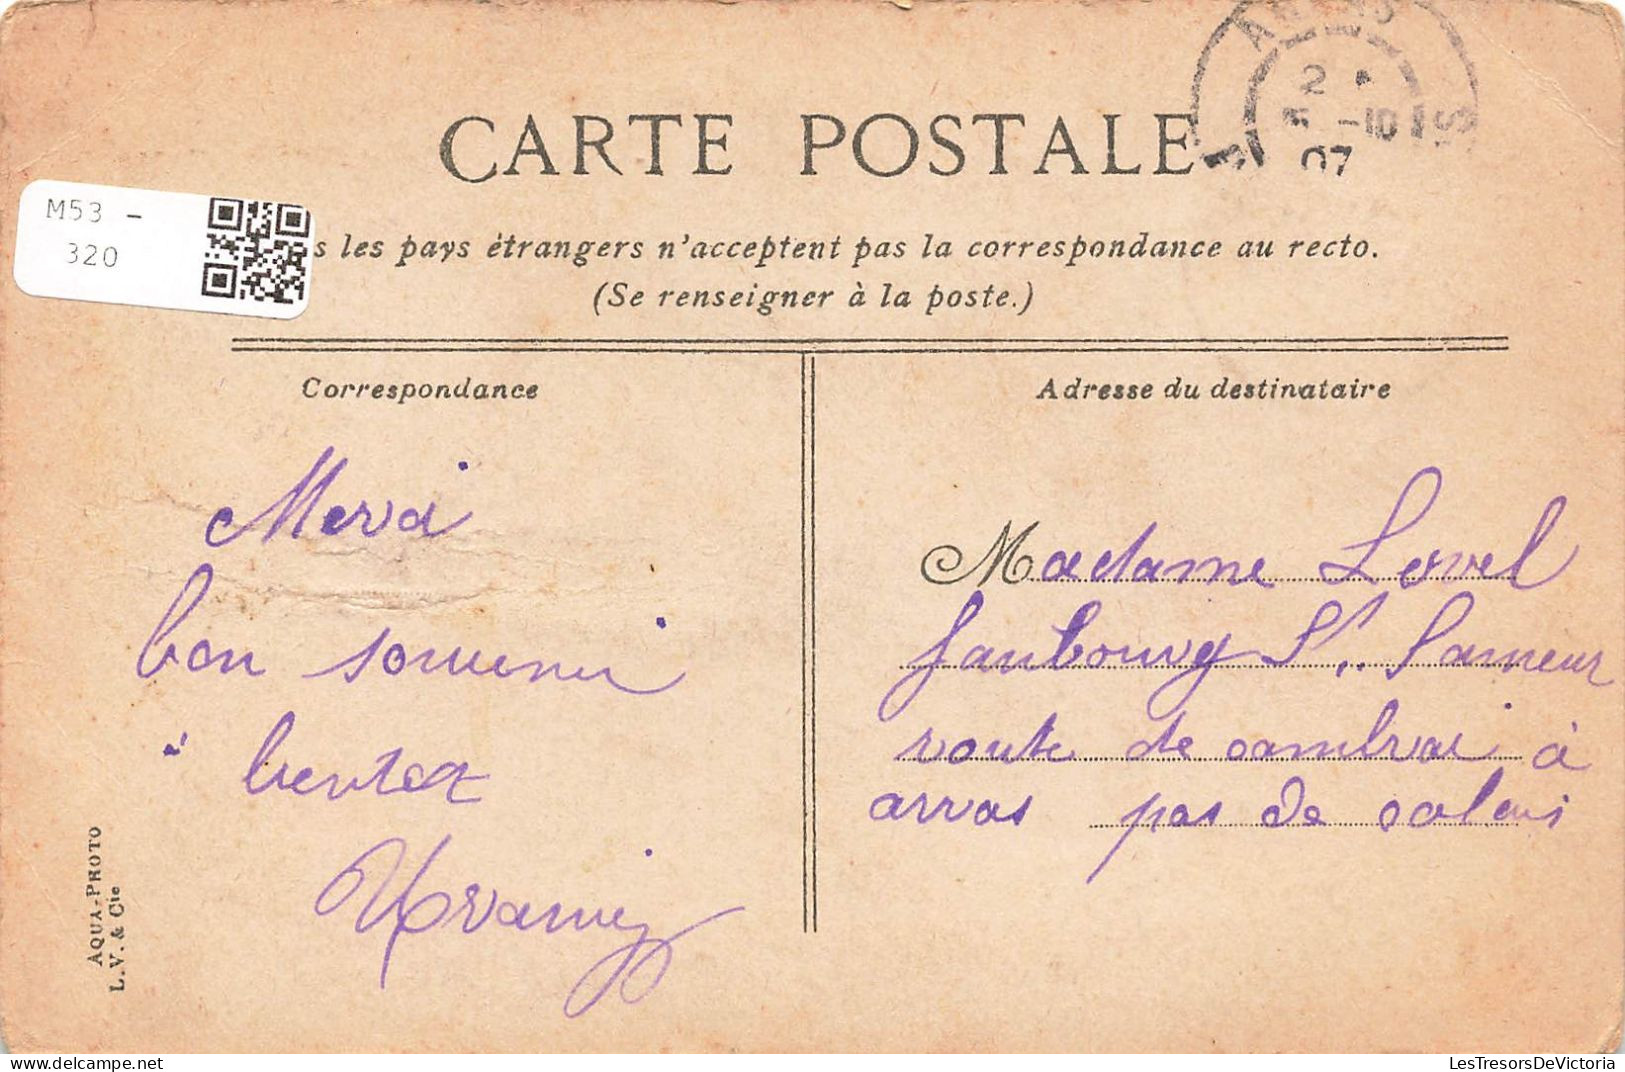 CARTE POSTALE
M53 -
320
s les pays étrangers n'acceptent pas la correspondance au recto.
(Se renseigner à la poste.)
2
-10
07
Correspondance
Merci
bon souvenir
à bientot
AQUA-PHOTO
L. V. & Cie
Adresse du destinataire
Madame Lovel
faubourg St. Sameur
route de cambrai à
arras pas de calais
LesTresorsDeVictoria